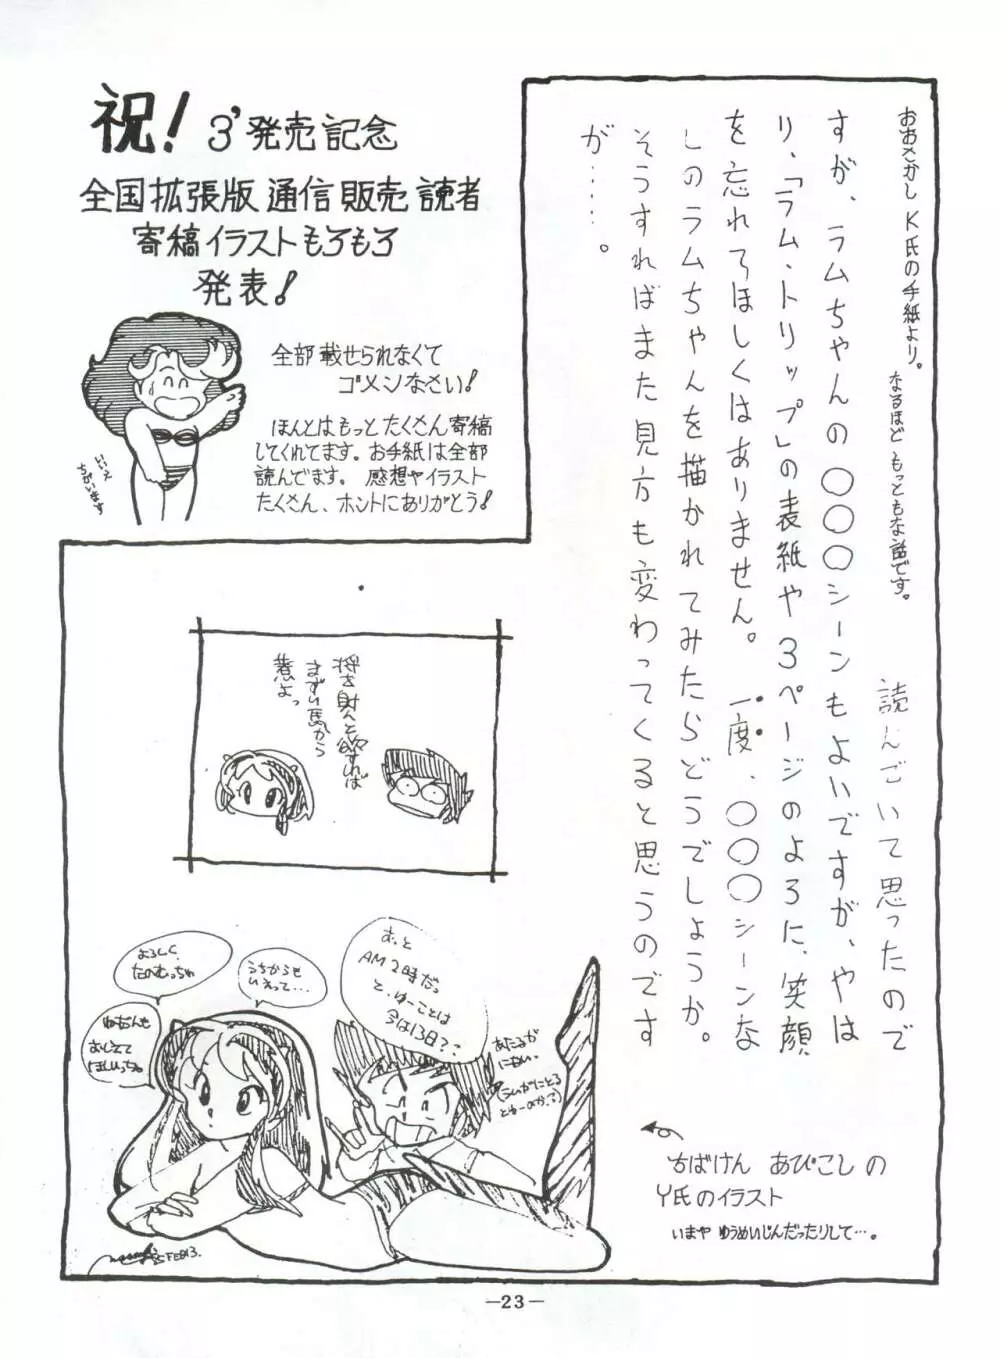 祝！ 3'発売記念
全国拡張版 通信販売 読者
寄稿イラストもろもろ
発表！
全部載せられなくて
ゴメンなさい！
ほんとはもっとたくさん寄稿
してくれてます。お手紙は全部
読んでます。感想やイラスト
たくさん、ホントにありがとう！
いいえ
ちがいます
おおさかし K氏の手紙より。
なるほど もっともな話です。
読んでいて思ったので
すが、ラムちゃんの〇〇〇シーンもよいですが、やは
り、「ラム・トリップ」の表紙や3ページのように、笑顔
を忘れてほしくはありません。一度、〇〇〇シーンな
しのラムちゃんを描かれてみたらどうでしょうか。
そうすればまた見方も変わってくると思うのです
が……。
将を射んと欲すれば
まずい馬から
煮よっ
よろしく
たのむっちゃ
うちからも
いえって…
おしえて
ほしいっちゃ
おっと
AM2時だっ
と、ゆーことは
今は13日？
あたるが
にてない
ちばけん あびこし の
Y氏のイラスト
いまや ゆうめいじんだったりして…。
—23—